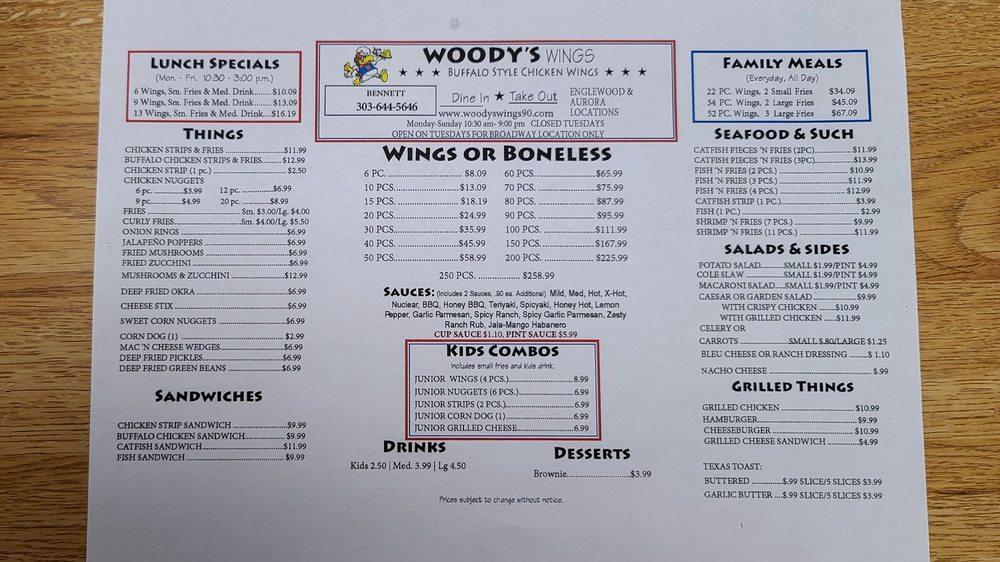 LUNCH SPECIALS
(Mon. - Fri. 10:30 - 3:00 p.m.)
6 Wings, Sm. Fries & Med. Drink........ $10.09
9 Wings, Sm. Fries & Med. Drink........ $13.09
13 Wings, Sm. Fries & Med. Drink....$16.19
THINGS
CHICKEN STRIPS & FRIES ........................$11.99
BUFFALO CHICKEN STRIPS & FRIES......... $12.99
CHICKEN STRIP (1 pc.) ........................... $2.50
CHICKEN NUGGETS
6 pc. ..............$3.99 12 pc. ..................$6.99
9 pc...............$4.99 20 pc. .................$8.99
FRIES ............................Sm. $3.00/Lg. $4.00
CURLY FRIES.....................Sm. $4.00/Lg. $5.50
ONION RINGS ....................................$6.99
JALAPEÑO POPPERS .............................$6.99
FRIED MUSHROOMS .............................$6.99
FRIED ZUCCHINI ..................................$6.99
MUSHROOMS & ZUCCHINI .....................$12.99
DEEP FRIED OKRA ...............................$6.99
CHEESE STIX ......................................$6.99
SWEET CORN NUGGETS ........................$6.99
CORN DOG (1) ....................................$2.99
MAC 'N CHEESE WEDGES.......................$6.99
DEEP FRIED PICKLES.............................$6.99
DEEP FRIED GREEN BEANS .....................$6.99
SANDWICHES
CHICKEN STRIP SANDWICH .....................$9.99
BUFFALO CHICKEN SANDWICH..................$9.99
CATFISH SANDWICH..............................$11.99
FISH SANDWICH ..................................$9.99
WOODY'S WINGS
★ ★ ★ BUFFALO STYLE CHICKEN WINGS ★ ★ ★
BENNETT
303-644-5646
Dine In ★ Take Out
ENGLEWOOD &
AURORA
LOCATIONS
www.woodyswings90.com
Monday-Sunday 10:30 am- 9:00 pm CLOSED TUESDAYS
OPEN ON TUESDAYS FOR BROADWAY LOCATION ONLY
WINGS OR BONELESS
6 PC. ......................... $8.09 60 PCS. ......................$65.99
10 PCS.......................$13.09 70 PCS. ......................$75.99
15 PCS. ......................$18.19 80 PCS. ......................$87.99
20 PCS. ......................$24.99 90 PCS. ......................$95.99
30 PCS. ......................$35.99 100 PCS. ....................$111.99
40 PCS. ......................$45.99 150 PCS. ....................$167.99
50 PCS. ......................$58.99 200 PCS. ....................$225.99
250 PCS. ................... $258.99
SAUCES: (Includes 2 Sauces, .90 ea. Additional) Mild, Med, Hot, X-Hot,
Nuclear, BBQ, Honey BBQ, Teriyaki, Spicyaki, Honey Hot, Lemon
Pepper, Garlic Parmesan, Spicy Ranch, Spicy Garlic Parmesan, Zesty
Ranch Rub, Jala-Mango Habanero
CUP SAUCE $1.10, PINT SAUCE $5.99
KIDS COMBOS
Includes small fries and kids drink.
JUNIOR WINGS (4 PCS.)....................... 8.99
JUNIOR NUGGETS (6 PCS.)................... 6.99
JUNIOR STRIPS (2 PCS.)....................... 6.99
JUNIOR CORN DOG (1)........................ 6.99
JUNIOR GRILLED CHEESE.................... 6.99
DRINKS
Kids 2.50 | Med. 3.99 | Lg 4.50
DESSERTS
Brownie............................$3.99
Prices subject to change without notice.
FAMILY MEALS
(Everyday, All Day)
22 PC. Wings, 2 Small Fries $34.09
34 PC. Wings, 2 Large Fries $45.09
52 PC. Wings, 3 Large Fries $67.09
SEAFOOD & SUCH
CATFISH PIECES 'N FRIES (2PC)...............$11.99
CATFISH PIECES 'N FRIES (3PC)...............$13.99
FISH 'N FRIES (2 PCS.) ........................ $10.99
FISH 'N FRIES (3 PCS.) .........................$11.99
FISH 'N FRIES (4 PCS.) ........................ $12.99
CATFISH STRIP (1 PC.)...........................$3.99
FISH (1 PC.) ..................................... $2.99
SHRIMP 'N FRIES (7 PCS.) .................... $9.99
SHRIMP 'N FRIES (11 PCS.) ...................$11.99
SALADS & SIDES
POTATO SALAD..........SMALL $1.99/PINT $4.99
COLE SLAW ..............SMALL $1.99/PINT $4.99
MACARONI SALAD.....SMALL $1.99/PINT $4.99
CAESAR OR GARDEN SALAD.....................$9.99
WITH CRISPY CHICKEN .........$10.99
WITH GRILLED CHICKEN .......$11.99
CELERY OR
CARROTS...................SMALL $.80/LARGE $1.25
BLEU CHEESE OR RANCH DRESSING .......$ 1.10
NACHO CHEESE ................................ $.99
GRILLED THINGS
GRILLED CHICKEN ..............................$10.99
HAMBURGER......................................$9.99
CHEESEBURGER ................................. $10.99
GRILLED CHEESE SANDWICH ..................$4.99
TEXAS TOAST:
BUTTERED ..............$.99 SLICE/5 SLICES $3.99
GARLIC BUTTER ....$.99 SLICE/5 SLICES $3.99